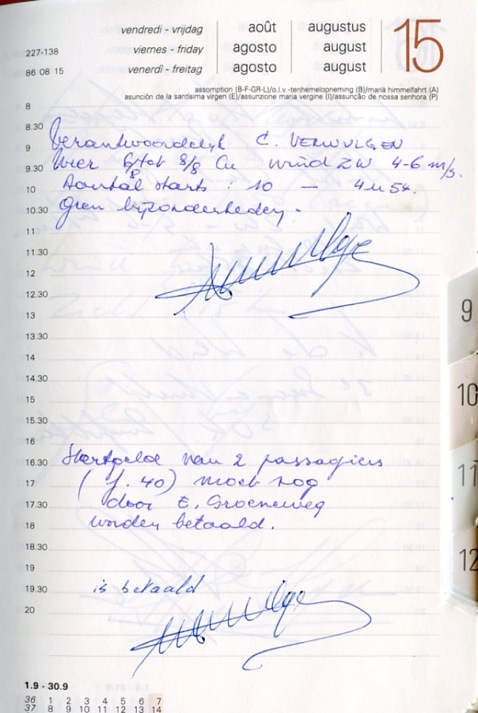 vendredi - vrijdag août augustus
227-138 viernes - friday agosto august 15
86 08 15 venerdi - freitag agosto august
assomption (B-F-GR-L)/o.l.v.-tenhemelopneming (B)/mariä himmelfahrt (A)
asunción de la santísima virgen (E)/assunzione maria vergine (I)/assunção de nossa senhora (P)
8
8.30
9 Verantwoordelijk C. VERWULGEN
9.30 Weer 8/8 Cu wind ZW 4-6 m/s.
10 Aantal starts : 10 — 4u54.
10.30 Geen bijzonderheden.
11
11.30
12
12.30
13
13.30
14
14.30
15
15.30
16
16.30 Startgelde van 2 passagiers
17 (f. 40) moet nog
17.30 door E. Groeneweg
18 worden betaald.
18.30
19
19.30 is betaald
20
9
10
11
12
1.9 - 30.9
36 1 2 3 4 5 6 7
37 8 9 10 11 12 13 14